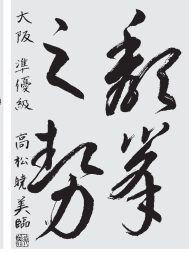 頽峯
之勢
大阪 準優級 高松曉美臨